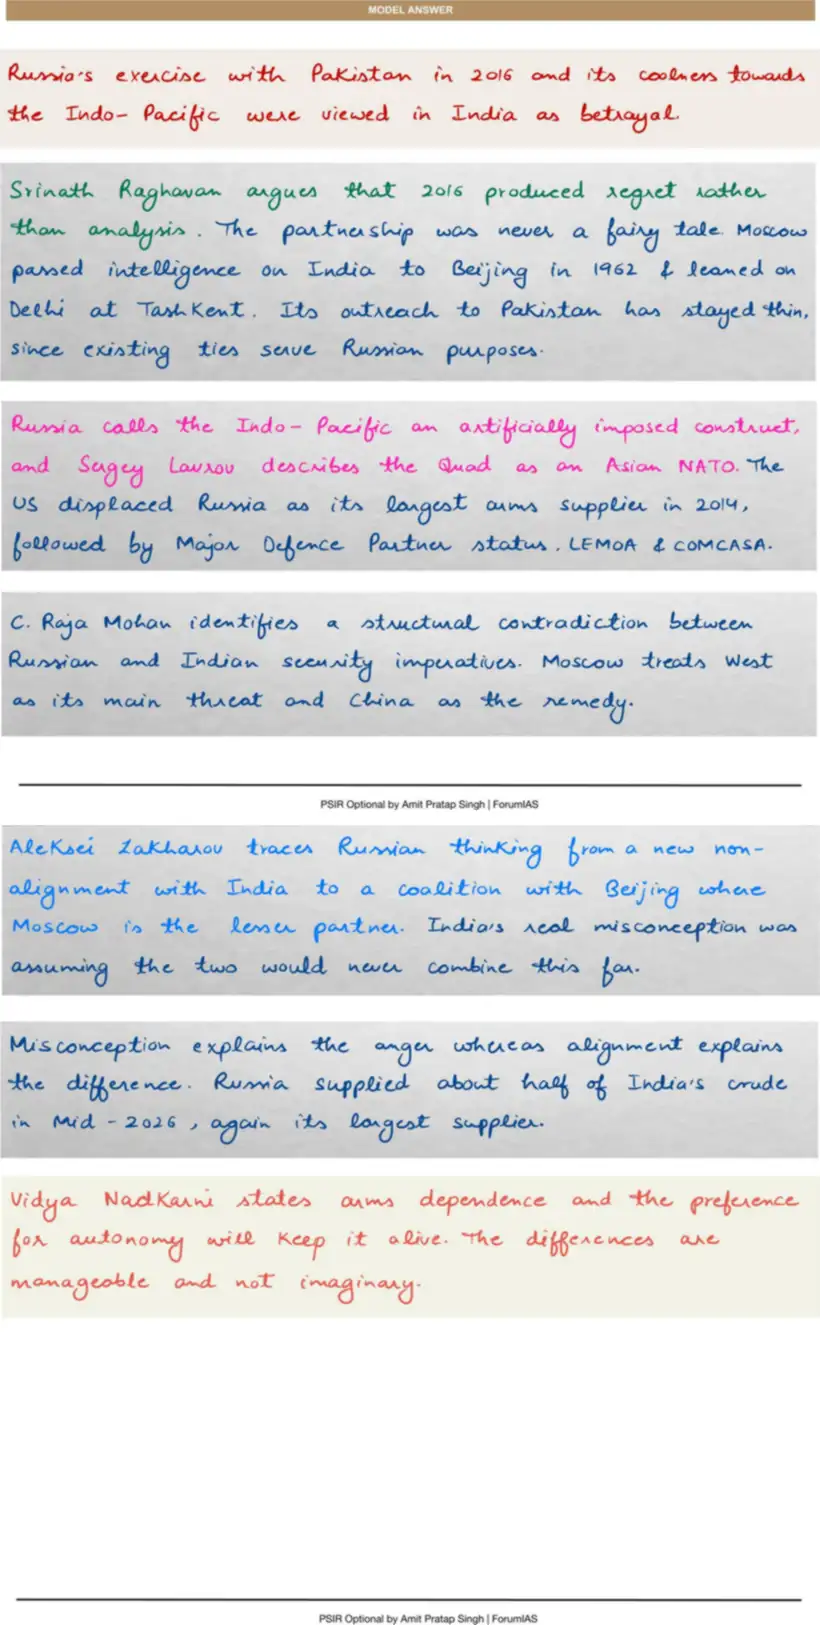 MODEL ANSWER
Russia's exercise with Pakistan in 2016 and its coolness towards
the Indo-Pacific were viewed in India as betrayal.
Srinath Raghavan argues that 2016 produced regret rather
than analysis. The partnership was never a fairy tale. Moscow
passed intelligence on India to Beijing in 1962 & leaned on
Delhi at Tashkent. Its outreach to Pakistan has stayed thin,
since existing ties serve Russian purposes.
Russia calls the Indo-Pacific an artificially imposed construct,
and Sergey Lavrov describes the Quad as an Asian NATO. The
US displaced Russia as its largest arms supplier in 2014,
followed by Major Defence Partner status, LEMOA & COMCASA.
C. Raja Mohan identifies a structural contradiction between
Russian and Indian security imperatives. Moscow treats West
as its main threat and China as the remedy.
PSIR Optional by Amit Pratap Singh | ForumIAS
Aleksei Zakharov traces Russian thinking from a new non-
alignment with India to a coalition with Beijing where
Moscow is the lesser partner. India's real misconception was
assuming the two would never combine this far.
Misconception explains the anger whereas alignment explains
the difference. Russia supplied about half of India's crude
in Mid-2026, again its largest supplier.
Vidya Nadkarni states arms dependence and the preference
for autonomy will keep it alive. The differences are
manageable and not imaginary.
PSIR Optional by Amit Pratap Singh | ForumIAS